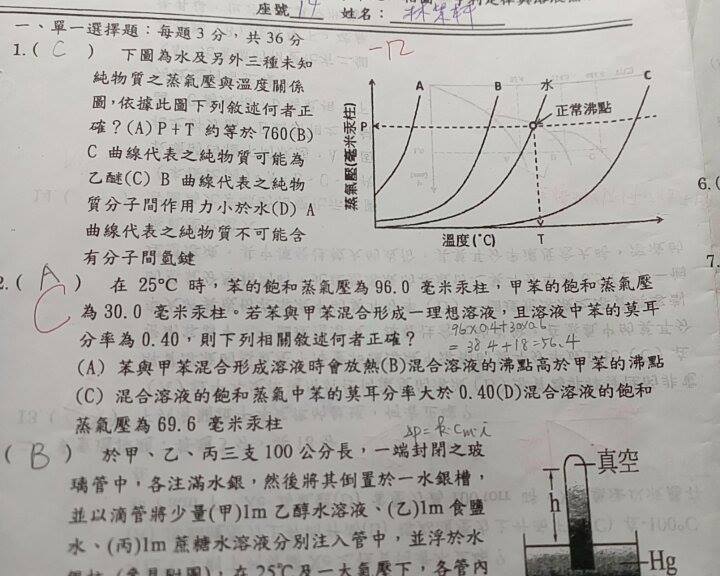 座號 14 姓名： 林
一、單一選擇題：每題 3 分，共 36 分
-12
1.( C ) 下圖為水及另外三種未知
純物質之蒸氣壓與溫度關係
圖，依據此圖下列敘述何者正
確？(A) P+T 約等於 760(B)
C 曲線代表之純物質可能為
乙醚(C) B 曲線代表之純物
質分子間作用力小於水(D) A
曲線代表之純物質不可能含
有分子間氫鍵
蒸氣壓(毫米汞柱)
P
A
B
水
C
正常沸點
溫度(°C)
T
6.(
7.
2.( A ) 在 25°C 時，苯的飽和蒸氣壓為 96.0 毫米汞柱，甲苯的飽和蒸氣壓
C
為 30.0 毫米汞柱。若苯與甲苯混合形成一理想溶液，且溶液中苯的莫耳
分率為 0.40，則下列相關敘述何者正確？
96×0.4+30×0.6
= 38.4+18=56.4
(A) 苯與甲苯混合形成溶液時會放熱(B)混合溶液的沸點高於甲苯的沸點
(C) 混合溶液的飽和蒸氣中苯的莫耳分率大於 0.40(D)混合溶液的飽和
蒸氣壓為 69.6 毫米汞柱
Δp=k·Cm·i
( B ) 於甲、乙、丙三支 100 公分長，一端封閉之玻
璃管中，各注滿水銀，然後將其倒置於一水銀槽，
並以滴管將少量(甲)1m 乙醇水溶液、(乙)1m 食鹽
水、(丙)1m 蔗糖水溶液分別注入管中，並浮於水
銀柱 (參見附圖)，在 25°C 及一大氣壓下，各管內
真空
h
Hg